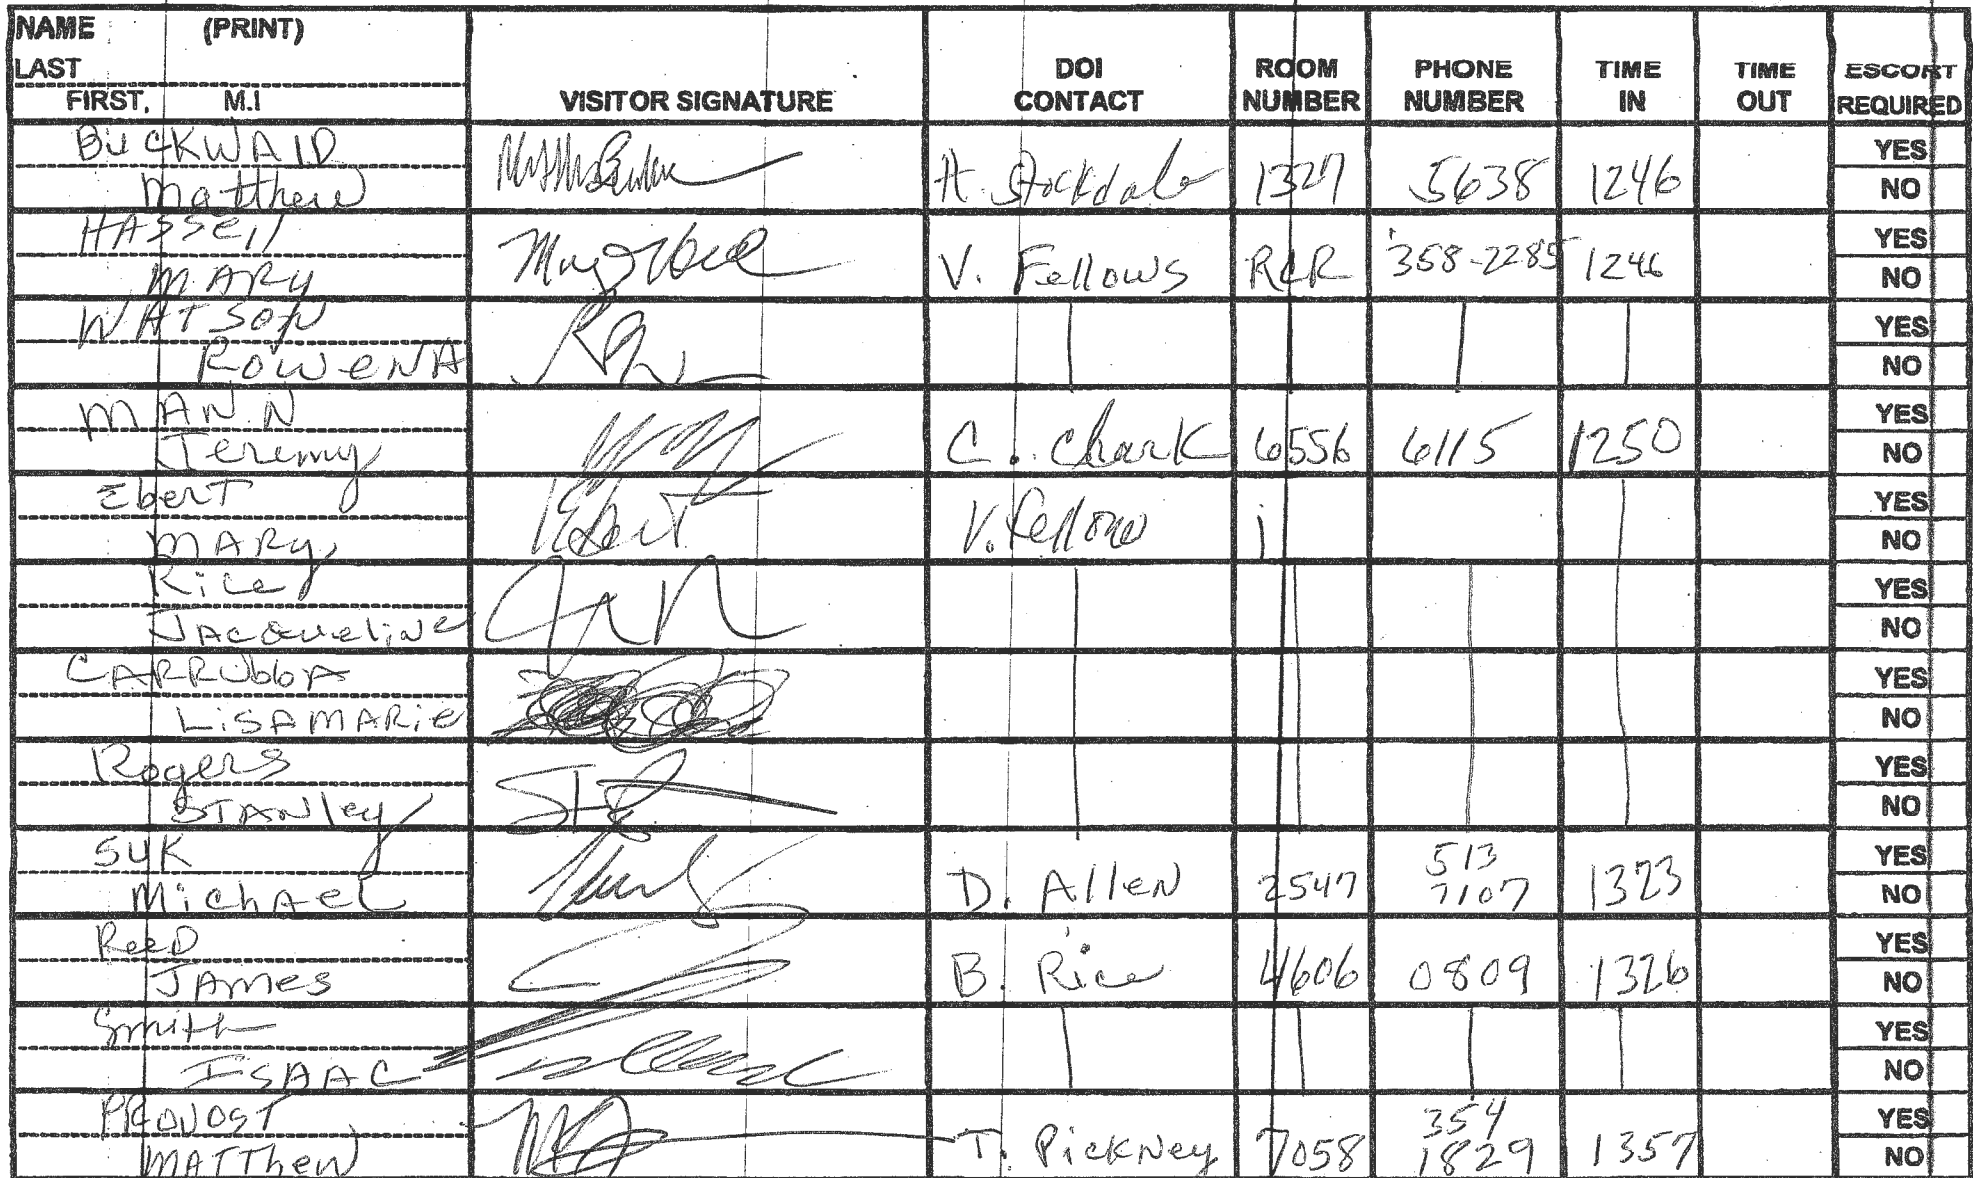 NAME (PRINT)
LAST
FIRST, M.I
VISITOR SIGNATURE
DOI CONTACT
ROOM NUMBER
PHONE NUMBER
TIME IN
TIME OUT
ESCORT REQUIRED
BUCKWALD
Matthew
A. Stockdale 1327 5638 1246
YES
NO
HASSEll
MARY
V. Fellows RCR 358-2285 1246
YES
NO
WATSON
ROWENA
YES
NO
MANN
Jeremy
C. Chark 6556 6115 1250
YES
NO
EberT
MARY
V. Fellows
YES
NO
Rice
JAcqueline
YES
NO
CARRUbbA
LiSAMARie
YES
NO
Rogers
STANley
YES
NO
SUK
MichAeL
D. AlleN 2547 513 7107 1323
YES
NO
ReeD
JAmes
B. Rice 4606 0809 1326
YES
NO
Smith
ISAAC
YES
NO
PROVOST
MATThew
T. PickNey 7058 354 1829 1357
YES
NO